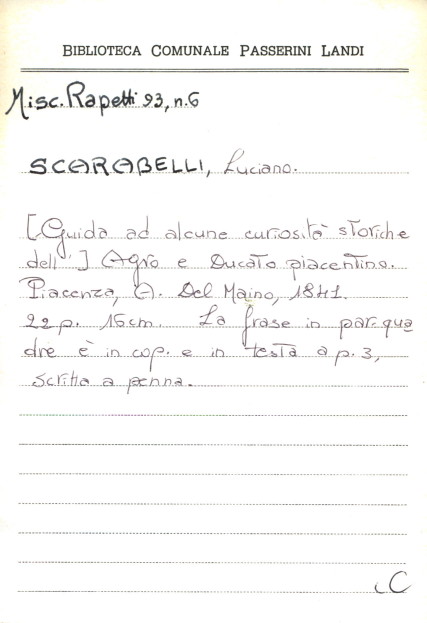 BIBLIOTECA COMUNALE PASSERINI LANDI
Misc. Rapetti 93, n.6
SCARABELLI, Luciano.
[Guida ad alcune curiosità storiche
dell'] Agro e Ducato piacentino.
Piacenza, A. Del Maino, 1841.
22 p. 16 cm. La frase in par. qua
dre è in cop. e in testa a p. 3,
scritta a penna.
C